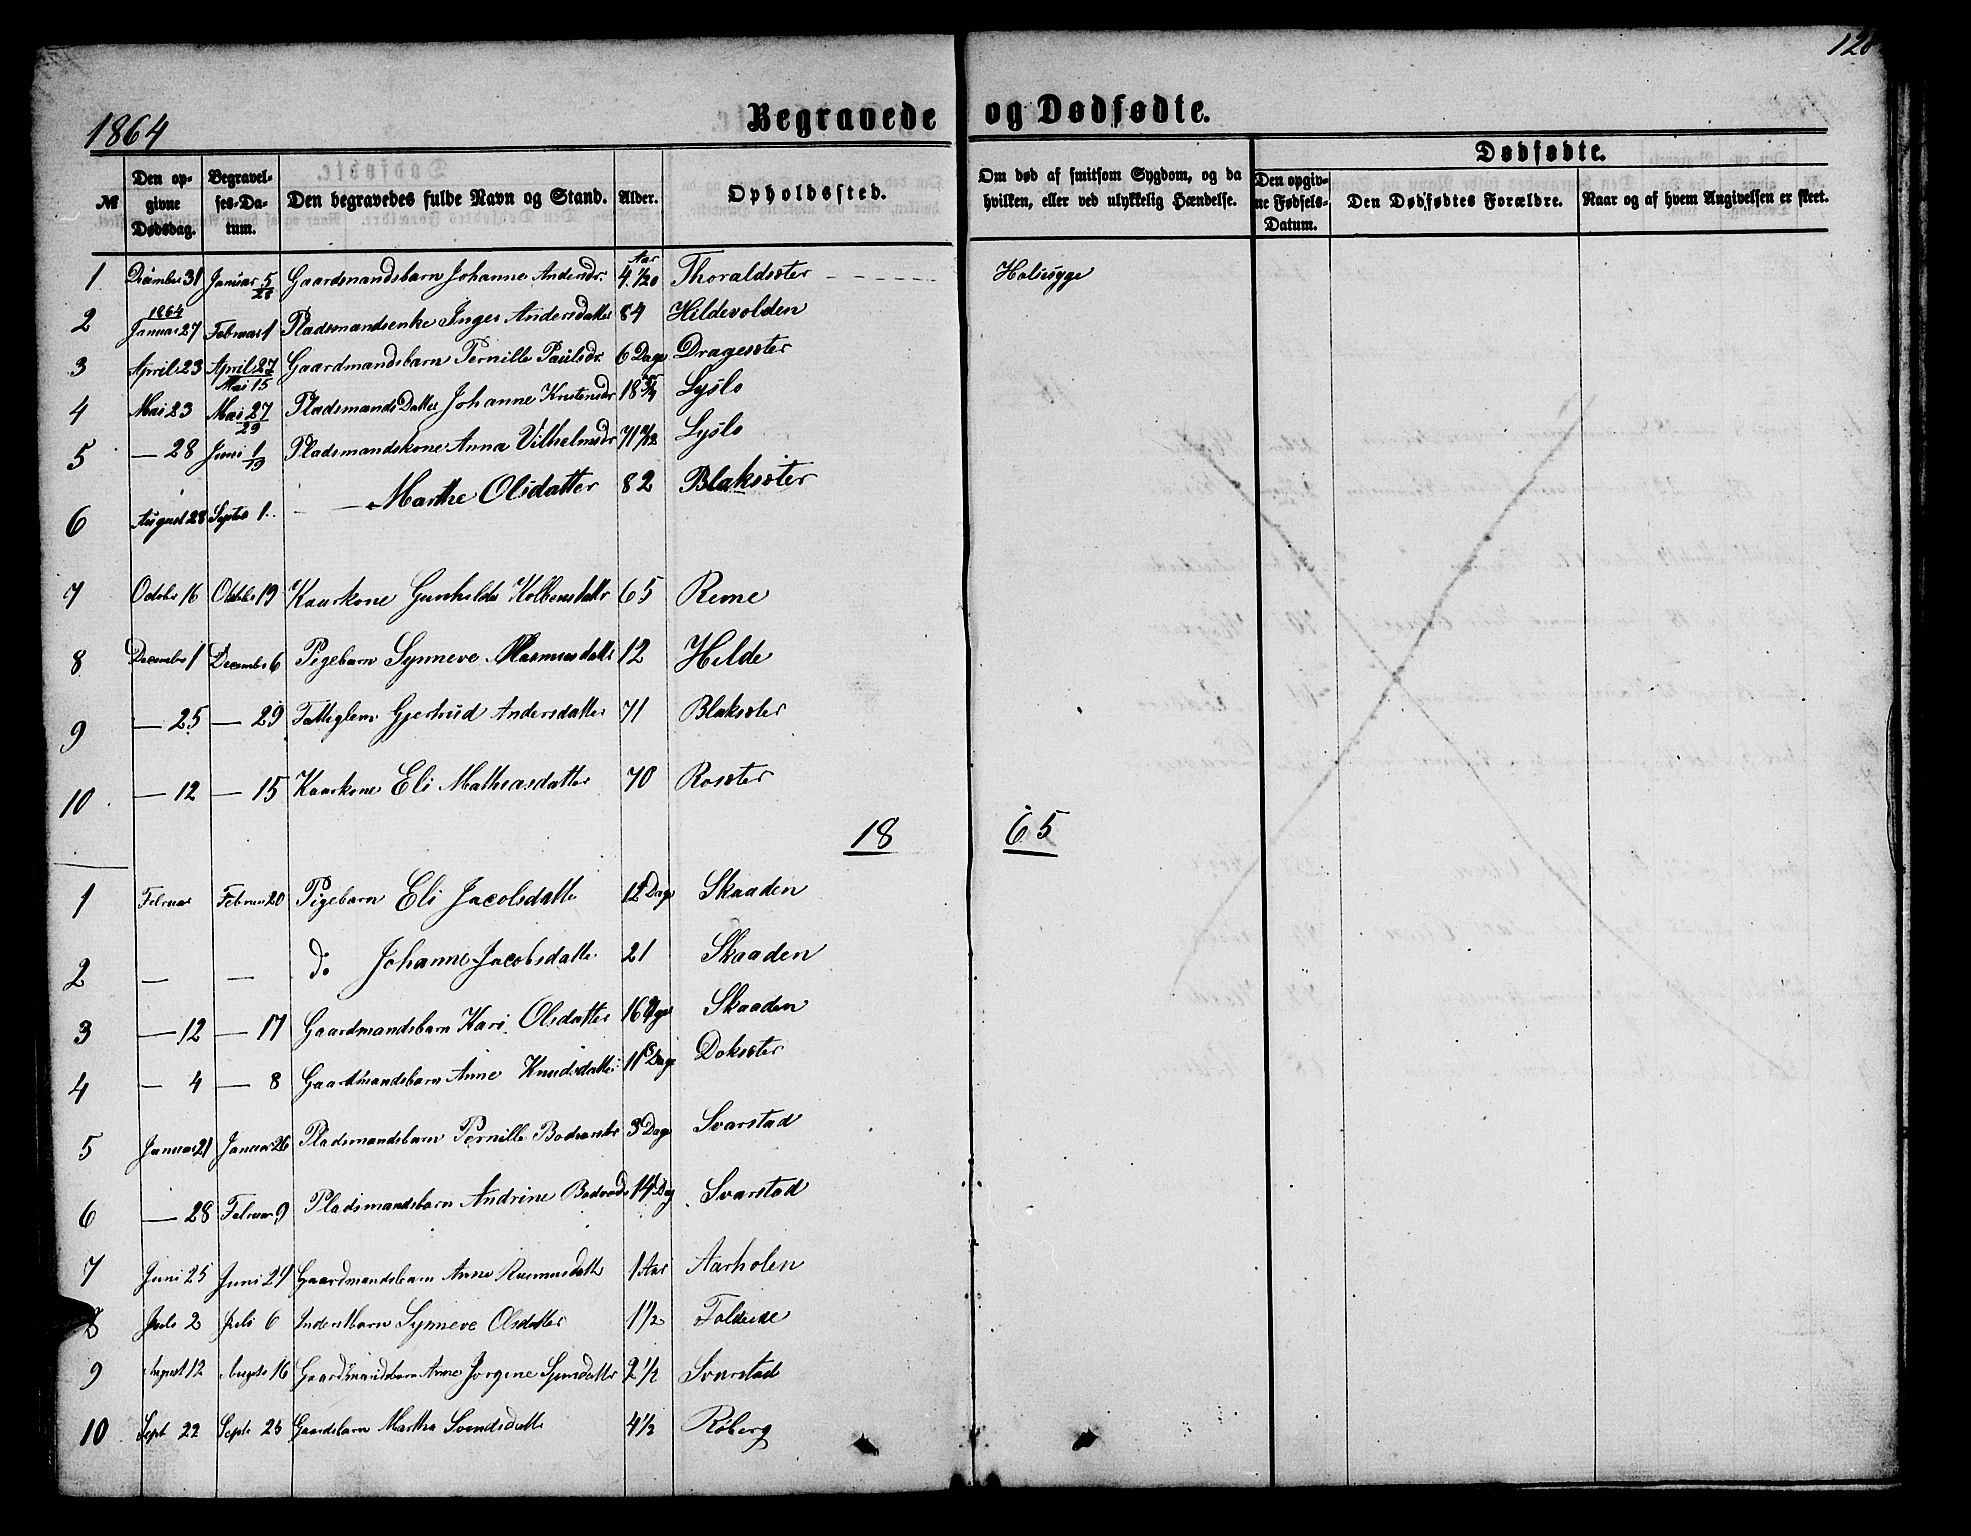 126
1864
Begravede og Dødfødte.
№ Den opgivne Dødsdag. Begravelses-Datum. Den begravedes fulde Navn og Stand. Alder. Opholdssted. Om død af smitsom Sygdom, og da hvilken, eller ved ulykkelig Hændelse. Dødfødte. Den opgivne Fødsels-Datum. Den Dødfødtes Forældre. Naar og af hvem Angivelsen er skeet.
1 December 31 Januar 5/28 Gaardmandsbarn Johanne Andersdr. Aar 4. 1/20 Thoraldsæter Halssyge
2 1864 Januar 27 Februar 1 Pladsmandsenke Inger Andersdatter 84 Hildevolden
3 April 23 April 27 Mai 15 Gaardmandsbarn Pernille Paulsdr. 6 Dage Dragesæter
4 Mai 23 Mai 27/29 Pladsmands Datter Johanne Kristensdr 18 Lyslo
5 — 28 Juni 1/19 Pladsmandskone Anna Vilhelmsdr 71 Lyslo
6 August 28 Septbr 1. — Marthe Olsdatter 82 Blaksæter
7 Octobr 16 Octobr 19 Kaarkone Gunhilda Kolbensdatter 65 Reme
8 Decembr 1 Decembr 6 Pigebarn Synneve Rasmusdatter 12 Hilde
9 — 25 — 29 Fattiglem Gjertrud Andersdatter 71 Blaksæter
10 — 12 — 15 Kaarkone Eli Mathiasdatter 70 Rosæter
18 65
1 Februar Februar 20 Pigebarn Eli Jacobsdatter 12 Dage Skaaden
2 — — do Johanne Jacobsdatter 21 Skaaden
3 — 12 — 17 Gaardmandsbarn Kari Olsdatter 16 Uger Skaaden
4 — 4 — 8 Gaardmandsbarn Anne Knudsdatter 11 Dage Doksæter
5 Januar 21 Januar 26 Pladsmandsbarn Pernille 3 Dage Svarstad
6 — 28 Februar 9 Pladsmandsbarn Andrine 14 Dag Svarstad
7 Juni 25 Juni 29 Gaardmandsbarn Anne Rasmusdatter 1 Aar Aarholen
8 Juli 2 Juli 6 Inderstbarn Synneve Olsdatter 1 1/2 Foldeide
9 August 12 August 16 Gaardmandsbarn Anne Jorgine 2 1/2 Svarstad
10 Sept 22 Septr 25 Gaardsbarn Martha Svendsdatter 4 1/2 Roberg